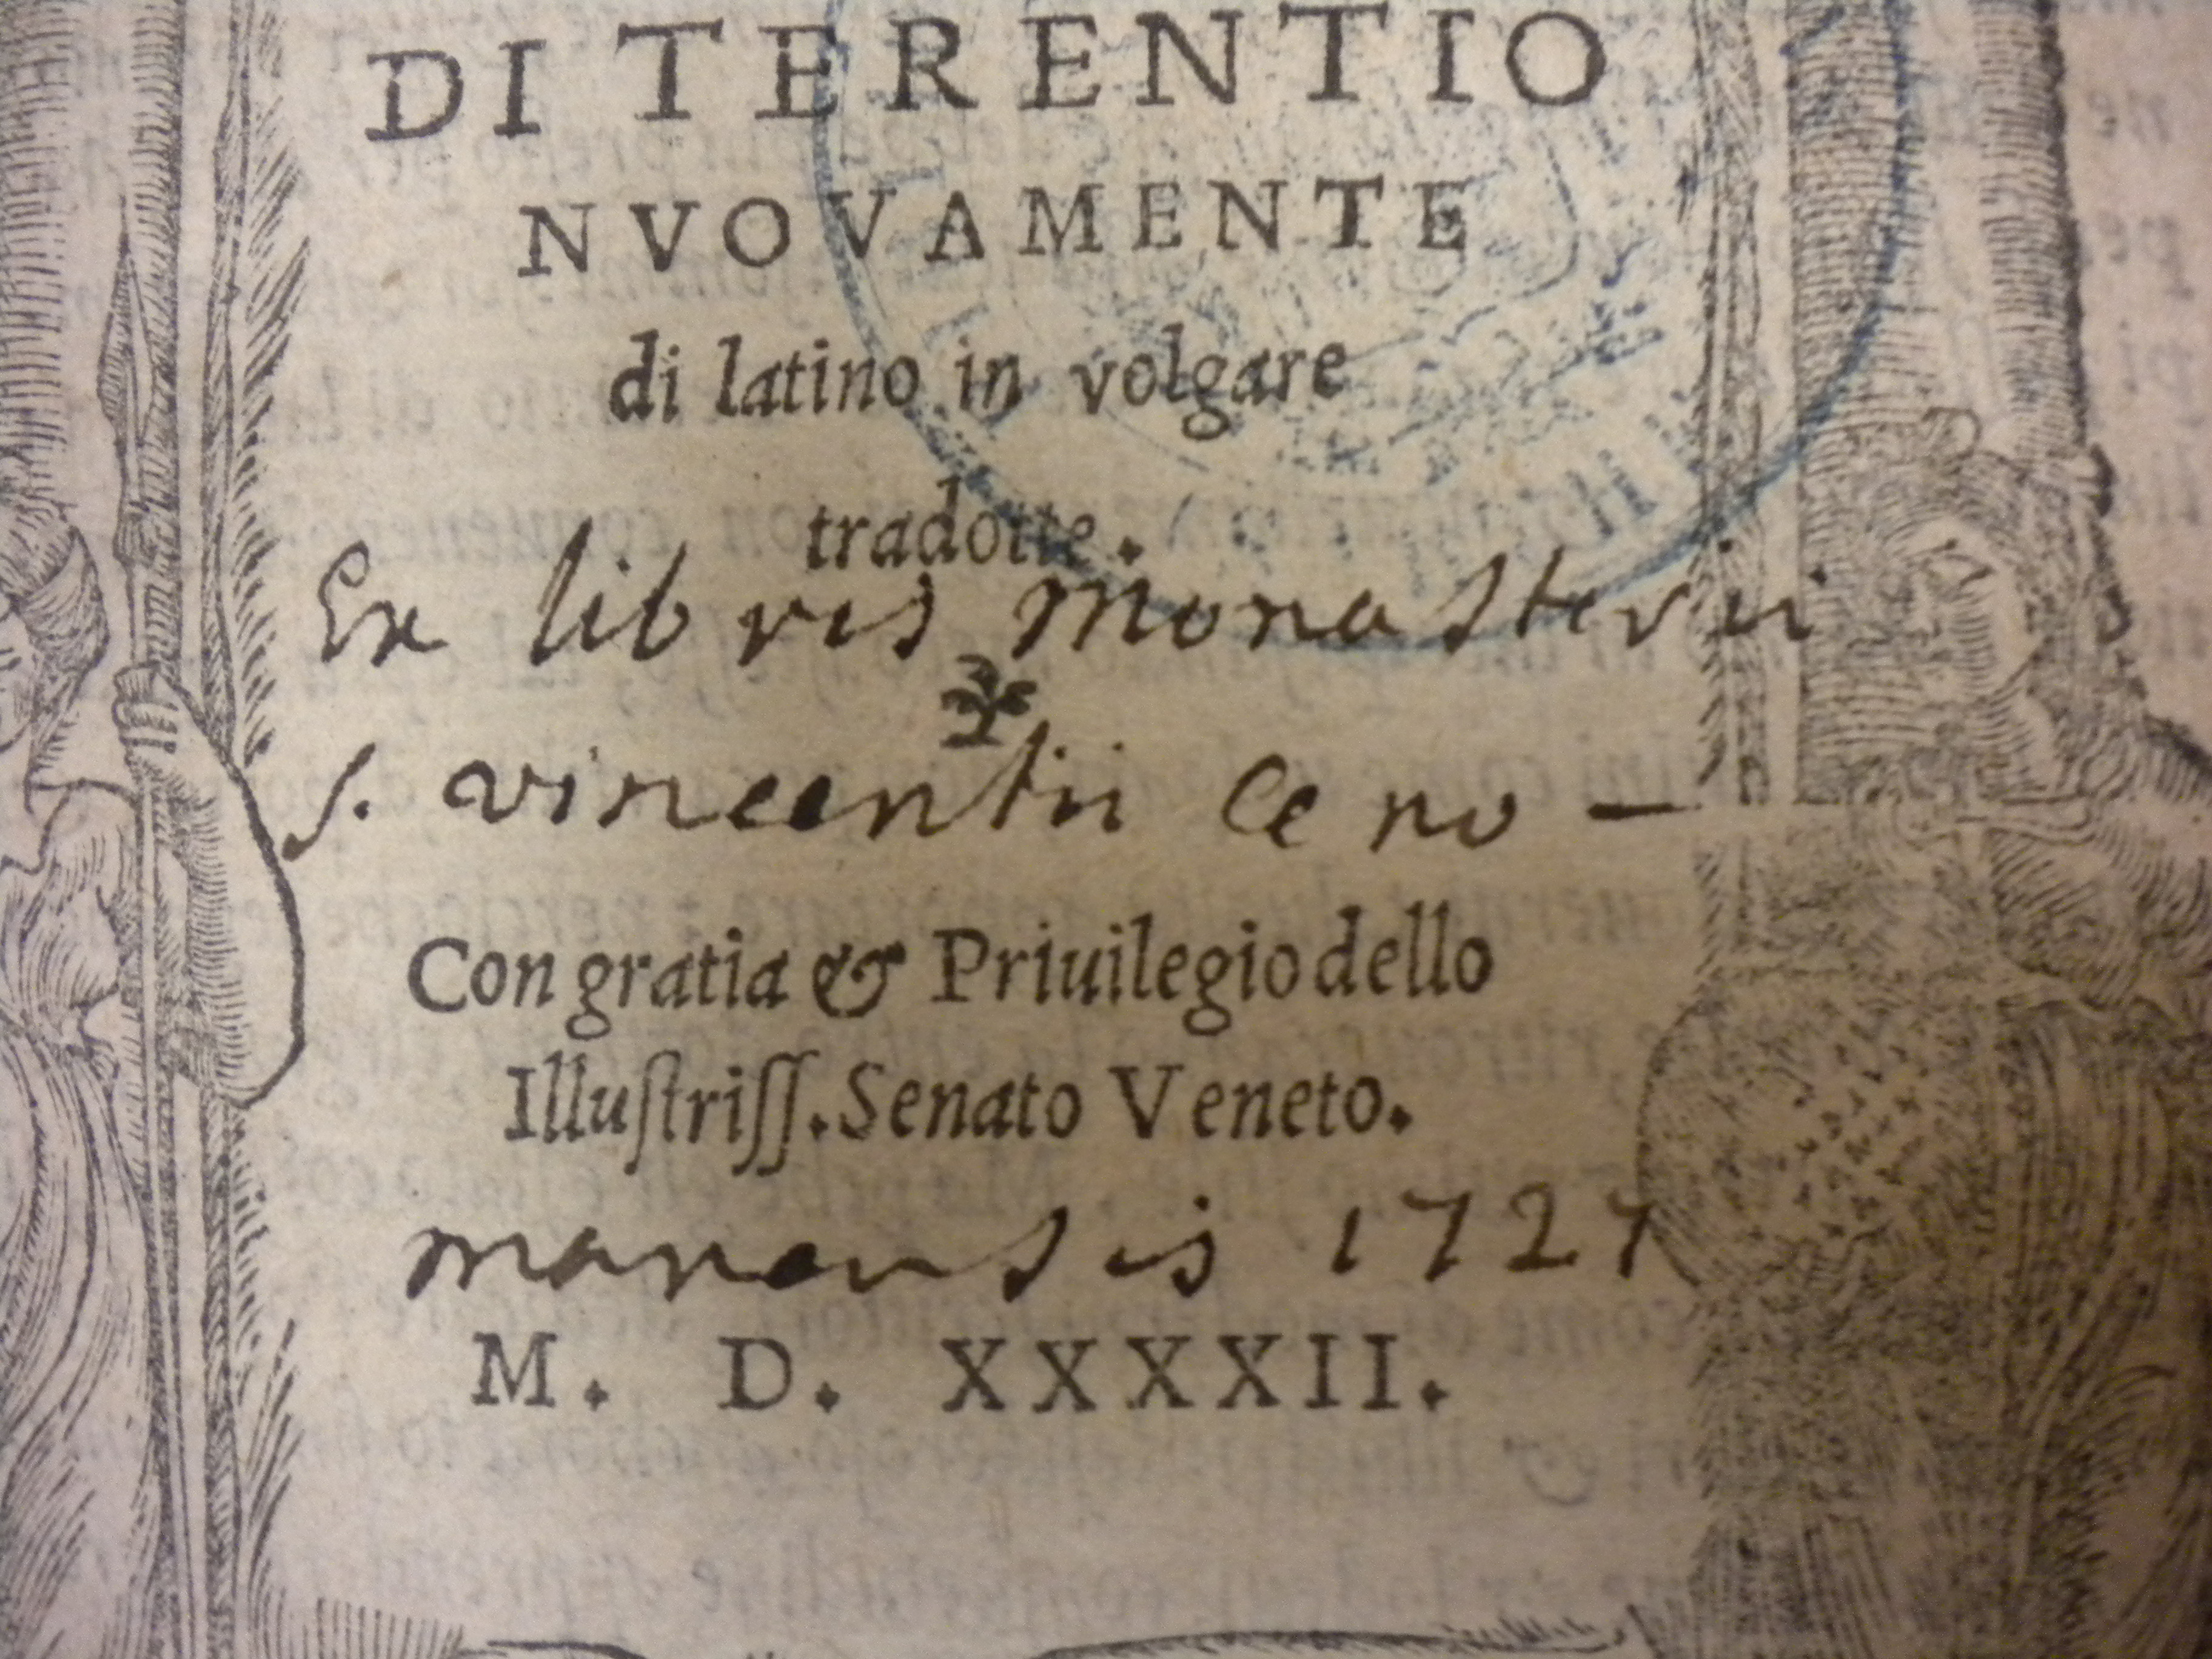 DI TERENTIO
NVOVAMENTE
di latino in volgare
tradotte.
Ex libris Monasterii
S. vincentii Ce no—
Con gratia & Priuilegio dello
Illuſtriſſ. Senato Veneto.
manensis 1727
M. D. XXXXII.